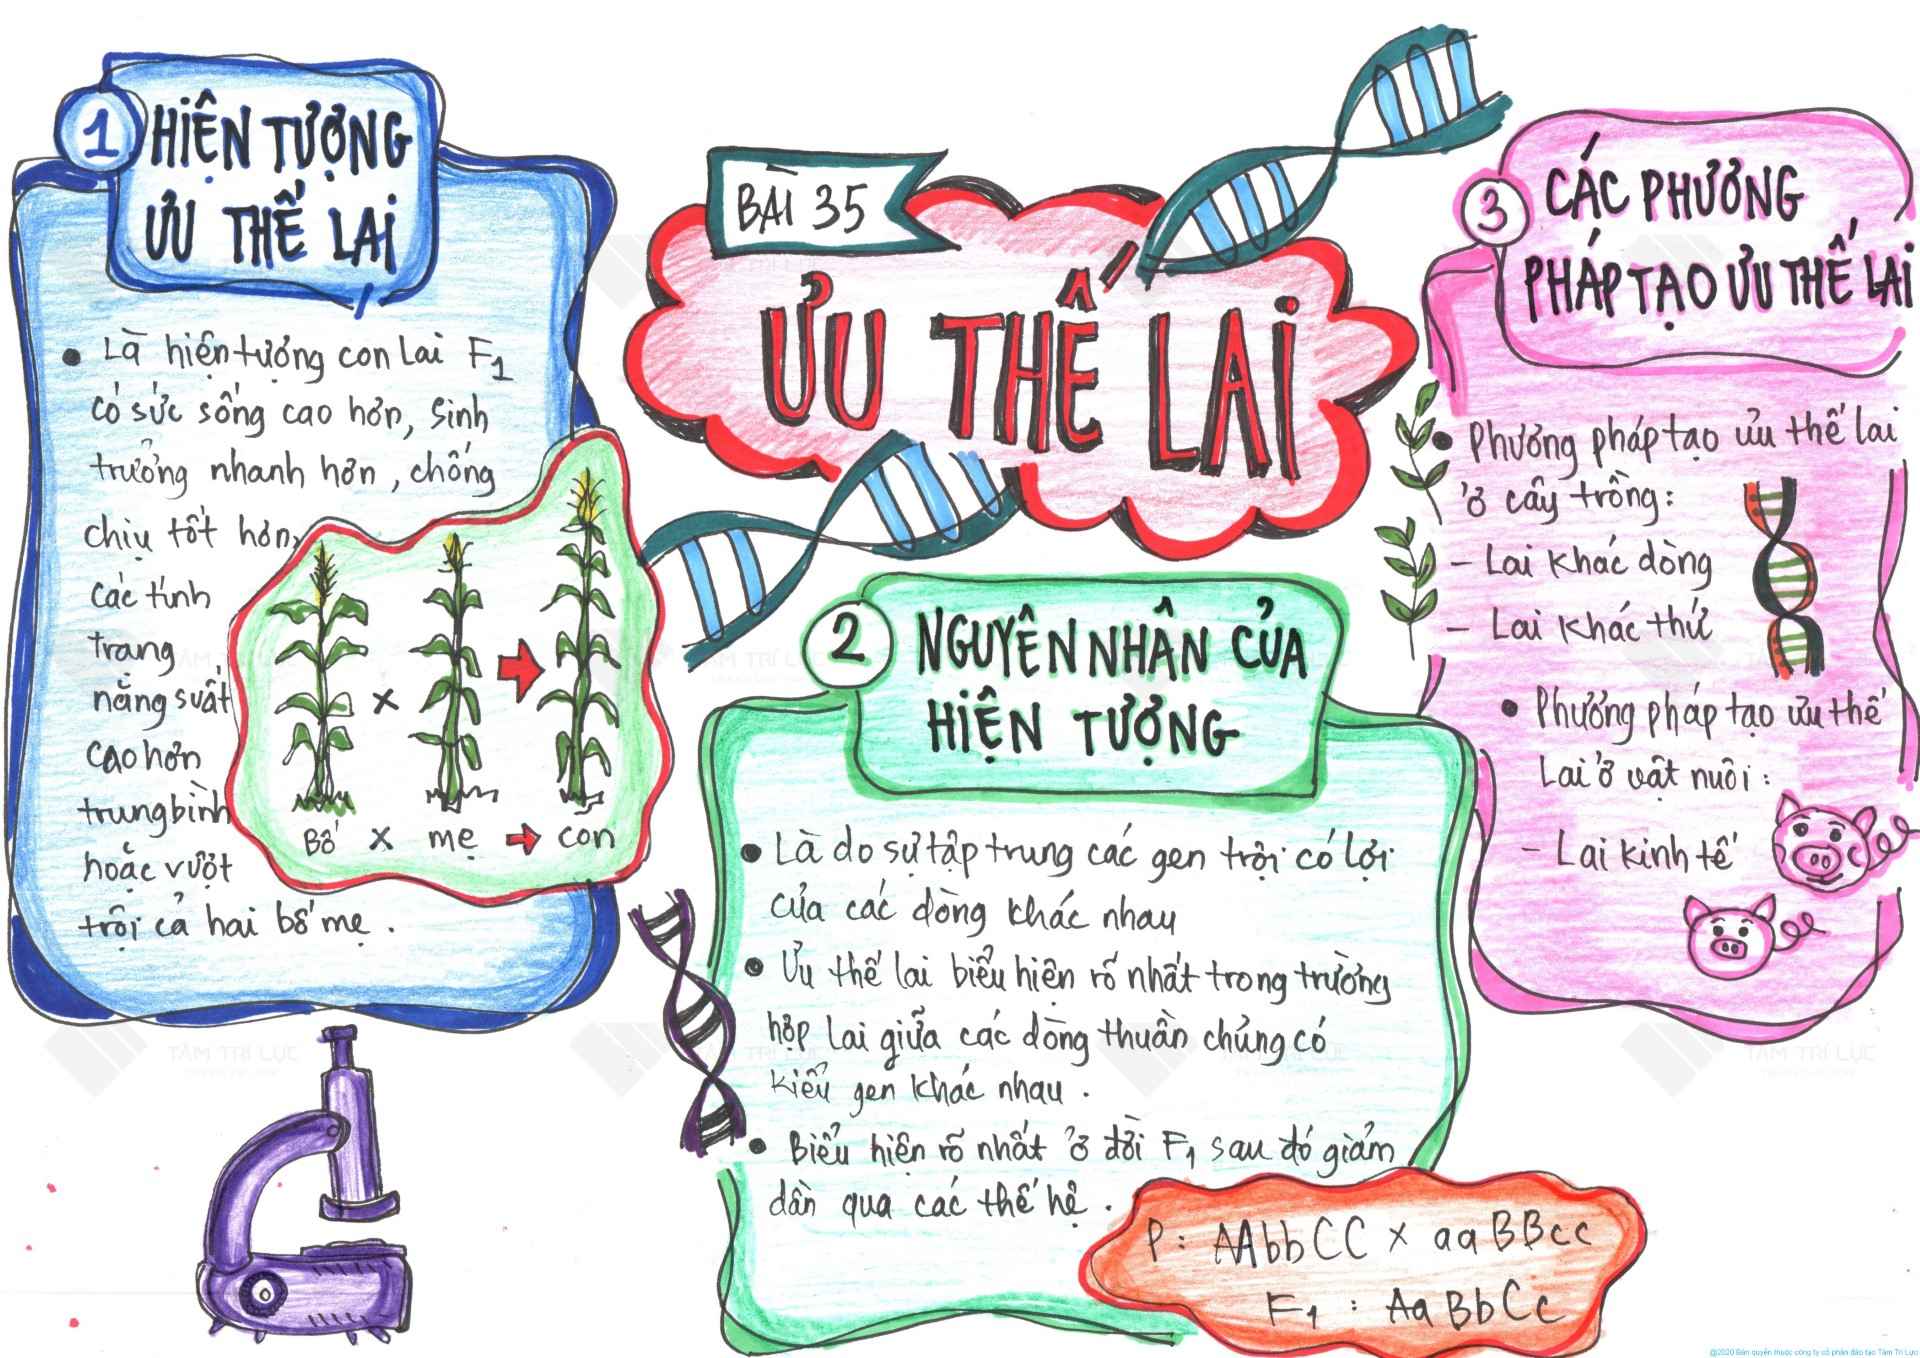 1 HIỆN TƯỢNG
ƯU THẾ LAI
• Là hiện tượng con lai F1
có sức sống cao hơn, sinh
trưởng nhanh hơn, chống
chịu tốt hơn,
các tính
trạng
năng suất
cao hơn
trung bình
hoặc vượt
trội cả hai bố mẹ.
Bố x mẹ → con
BÀI 35
ƯU THẾ LAI
2 NGUYÊN NHÂN CỦA
HIỆN TƯỢNG
• Là do sự tập trung các gen trội có lợi
của các dòng khác nhau
• Ưu thế lai biểu hiện rõ nhất trong trường
hợp lai giữa các dòng thuần chủng có
kiểu gen khác nhau.
• Biểu hiện rõ nhất ở đời F1 sau đó giảm
dần qua các thế hệ.
P: AAbbCC x aaBBcc
F1: AaBbCc
3 CÁC PHƯƠNG
PHÁP TẠO ƯU THẾ LAI
• Phương pháp tạo ưu thế lai
ở cây trồng:
- Lai khác dòng
- Lai khác thứ
• Phương pháp tạo ưu thế
lai ở vật nuôi:
- Lai kinh tế
TÂM TRÍ LỰC
@2020 Bản quyền thuộc công ty cổ phần đào tạo Tâm Trí Lực